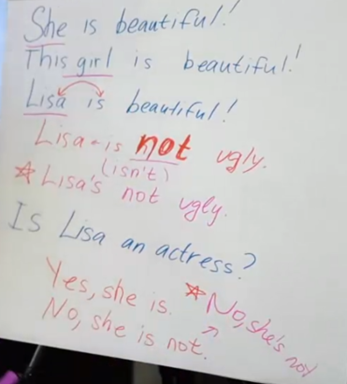 She is beautiful!
This girl is beautiful!
Lisa is beautiful!
Lisa is not ugly.
(isn't)
☆ Lisa's not ugly.
Is Lisa an actress?
Yes, she is.
No, she is not.
☆ No, she's not